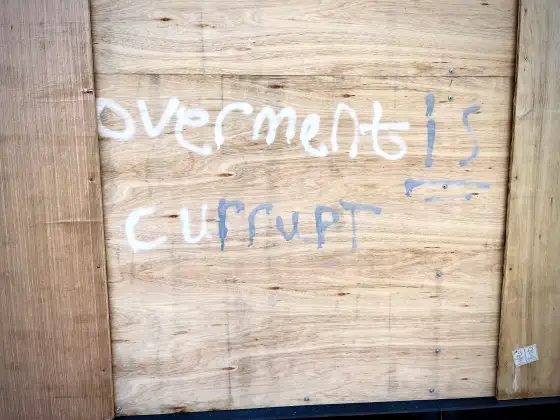 overment is
currupt